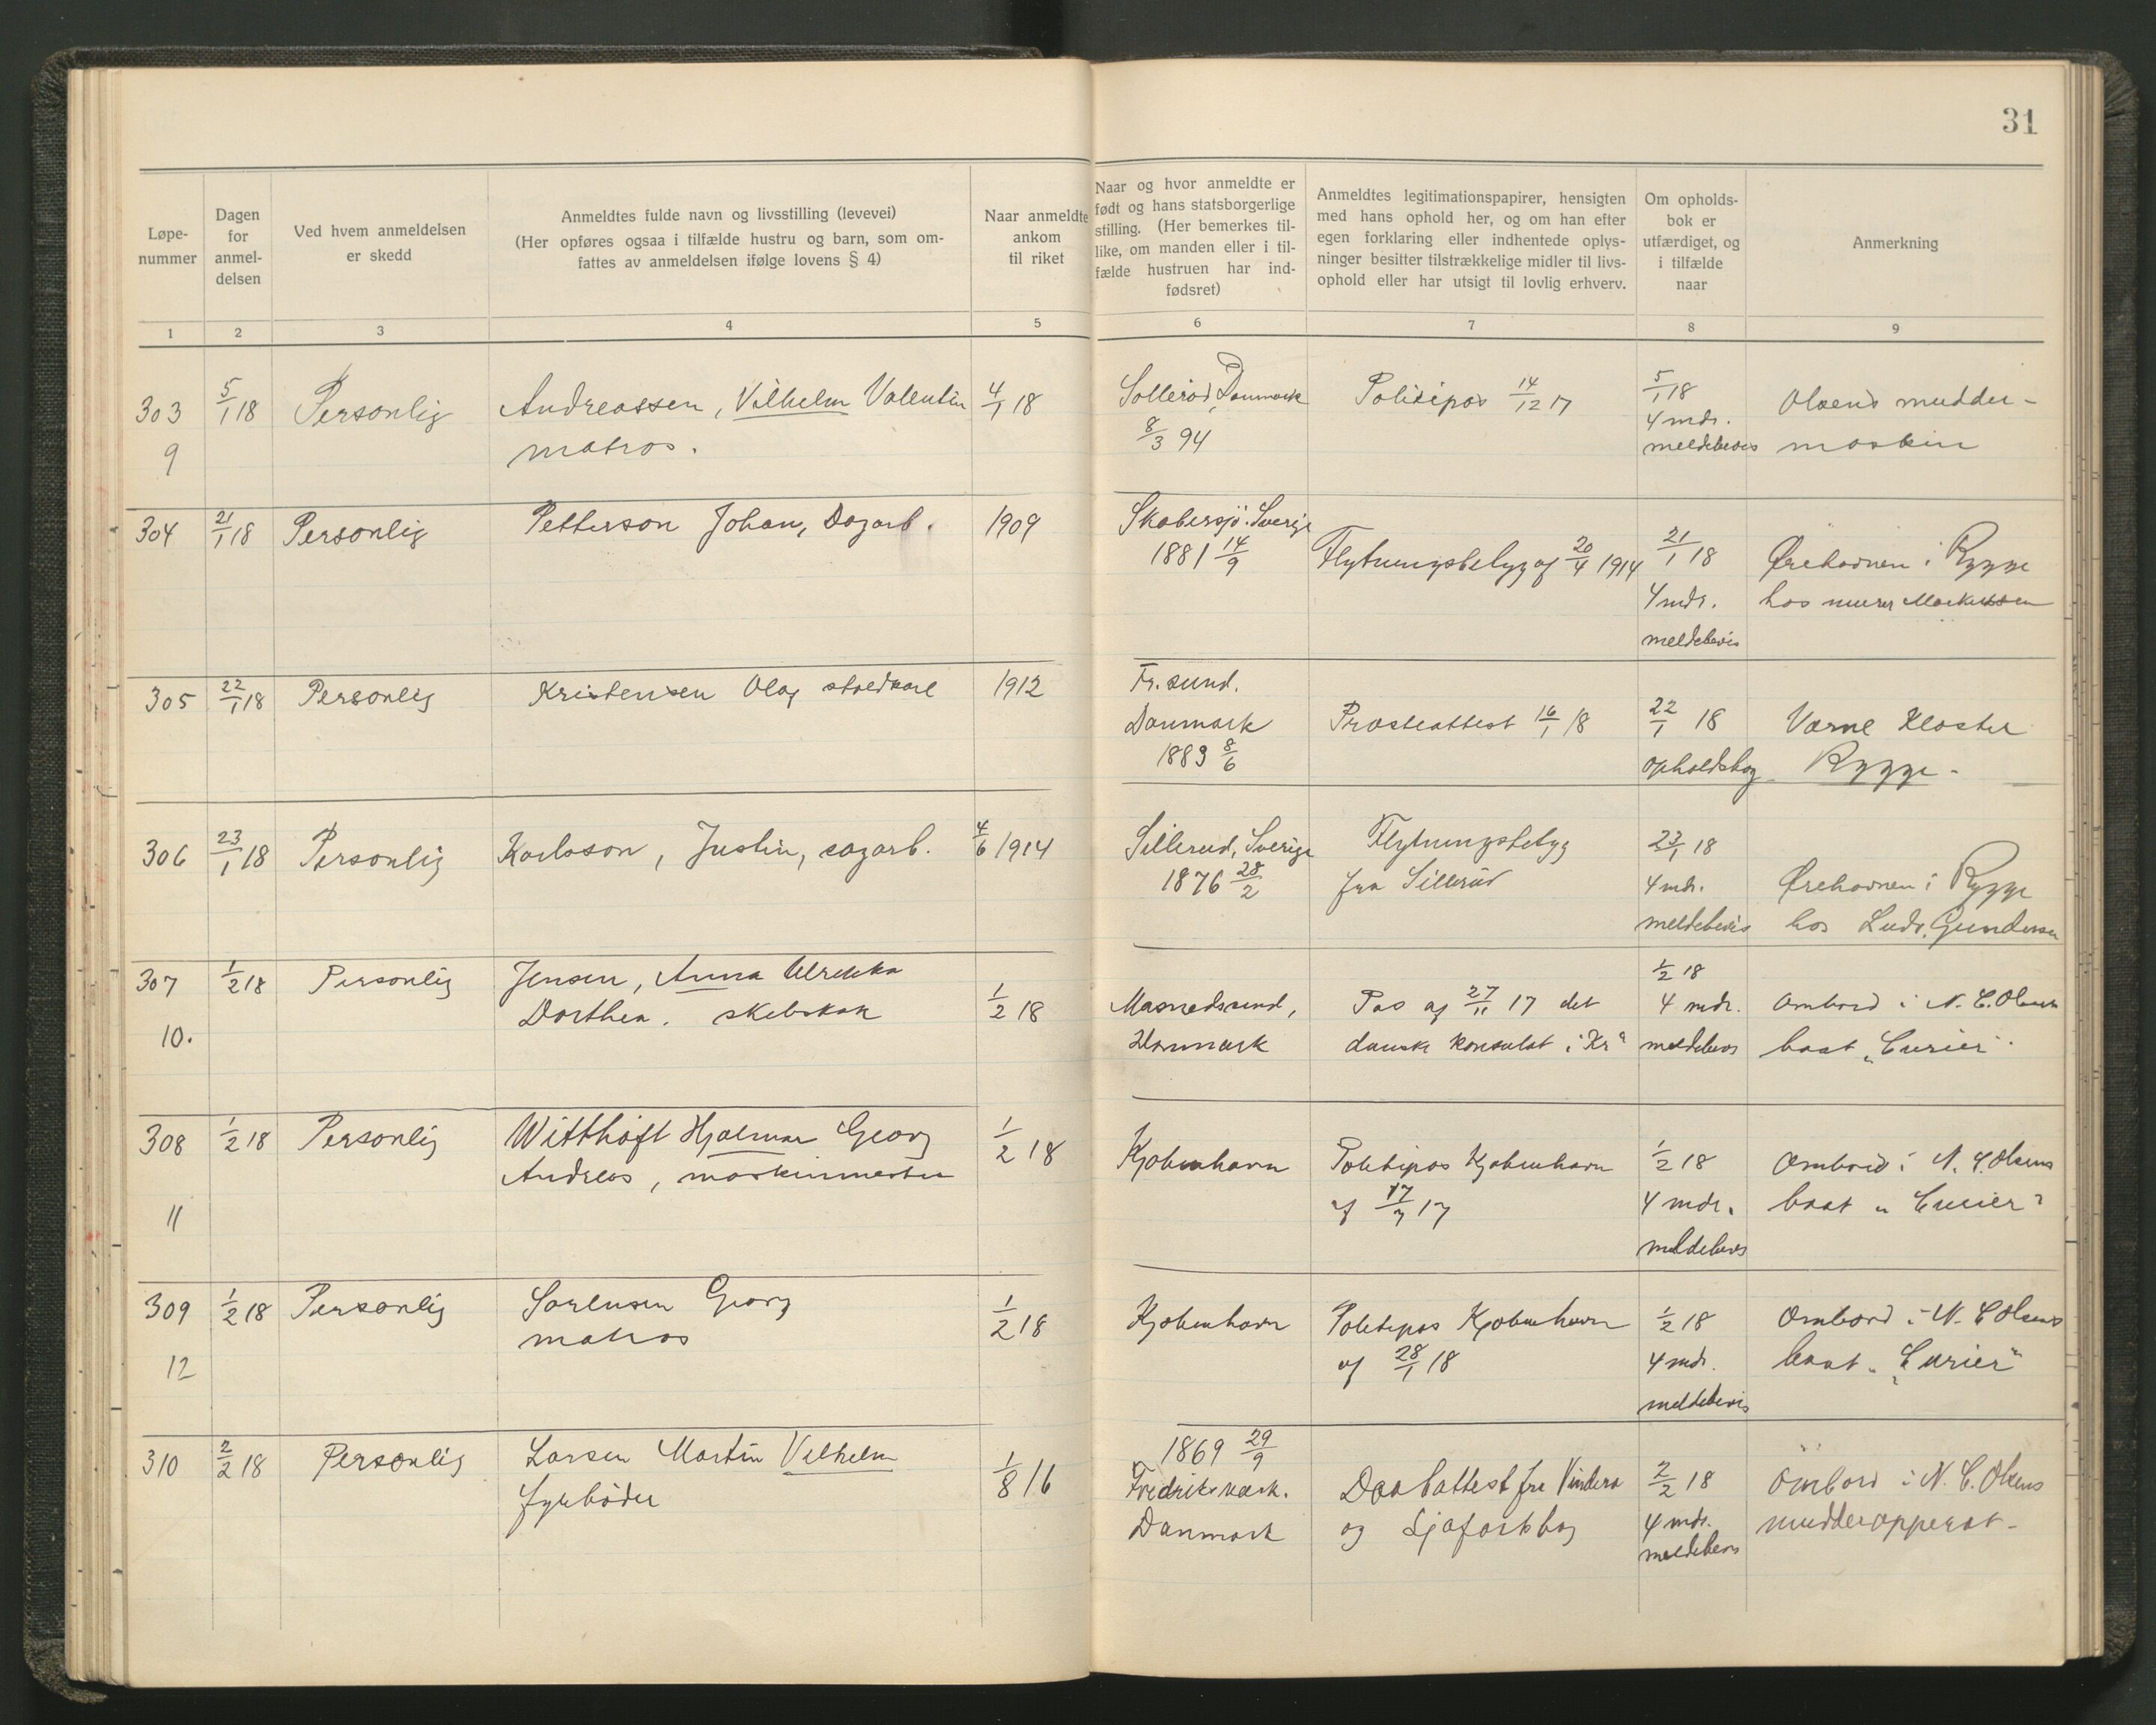 31
Løpe-
nummer
Dagen
for
anmel-
delsen
Ved hvem anmeldelsen
er skedd
Anmeldtes fulde navn og livsstilling (levevei)
(Her opføres ogsaa i tilfælde hustru og barn, som om-
fattes av anmeldelsen ifølge lovens § 4)
Naar anmeldte
ankom
til riket
Naar og hvor anmeldte er
født og hans statsborgerlige
stilling. (Her bemerkes til-
like, om manden eller i til-
fælde hustruen har ind-
fødsret)
Anmeldtes legitimationspapirer, hensigten
med hans ophold her, og om han efter
egen forklaring eller indhentede oplys-
ninger besitter tilstrækkelige midler til livs-
ophold eller har utsigt til lovlig erhverv.
Om opholds-
bok er
utfærdiget, og
i tilfælde
naar
Anmerkning
1 2 3 4 5 6 7 8 9
303
9
5/1 18
Personlig
Andreassen, Vilhelm Valentin
matros.
4/1 18
Sölleröd, Danmark
8/3 94
Politipas 14/12 17
5/1 18
4 mdr.
meldebevis
Olsens mudder-
maskin
304
21/1 18
Personlig
Petterson Johan, Dagarb.
1909
Skabersjö. Sverige
1881 14/9
Flytningsbetyg af 20/4 1914
21/1 18
4 mdr.
meldebevis
Ørehavnen i Rygge
hos murer Markussen
305
22/1 18
Personlig
Kristensen Olaf staldkarl
1912
Fr. sund.
Danmark
1889 8/6
Prosteattest 16/1 18
22/1 18
opholdsbog
Værne Kloster
Rygge -
306
23/1 18
Personlig
Karlsson, Justin, sagarb.
4/6 1914
Sillerud, Sverige
1876 28/2
Flytningsbetyg
fra Sillerud
23/1 18
4 mdr.
meldebevis
Ørehavnen i Rygge
hos Ludv. Gundersen
307
10.
1/2 18
Personlig
Jensen, Anna Ulrikka
Dorthea. skibskok
1/2 18
Masnedsund,
Danmark
Pas af 27/11 17 det
danske konsulat i Kra
1/2 18
4 mdr.
meldebevis
Ombord i N. C. Olsens
baat „Curier".
308
11
1/2 18
Personlig
Witthöft Hjalmar Georg
Andreas, maskinmester
1/2 18
Kjøbenhavn
Politipas Kjøbenhavn
af 17/7 17
1/2 18
4 mdr.
meldebevis
Ombord i N. C. Olsens
baat „Curier"
309
12
1/2 18
Personlig
Sørensen Georg
matros
1/2 18
Kjøbenhavn
Politipas Kjøbenhavn
af 28/1 18
1/2 18
4 mdr.
meldebevis
Ombord i N. C Olsens
baat „Curier"
310
2/2 18
Personlig
Larsen Martin Vilhelm
fyrbøder
1/8 16
1869 29/9
Fredriksværk.
Danmark
Daabattest fra Vinderø
og Sjøfartsbog
2/2 18
4 mdr.
meldebevis
Ombord i N. C. Olsens
mudderapparat-